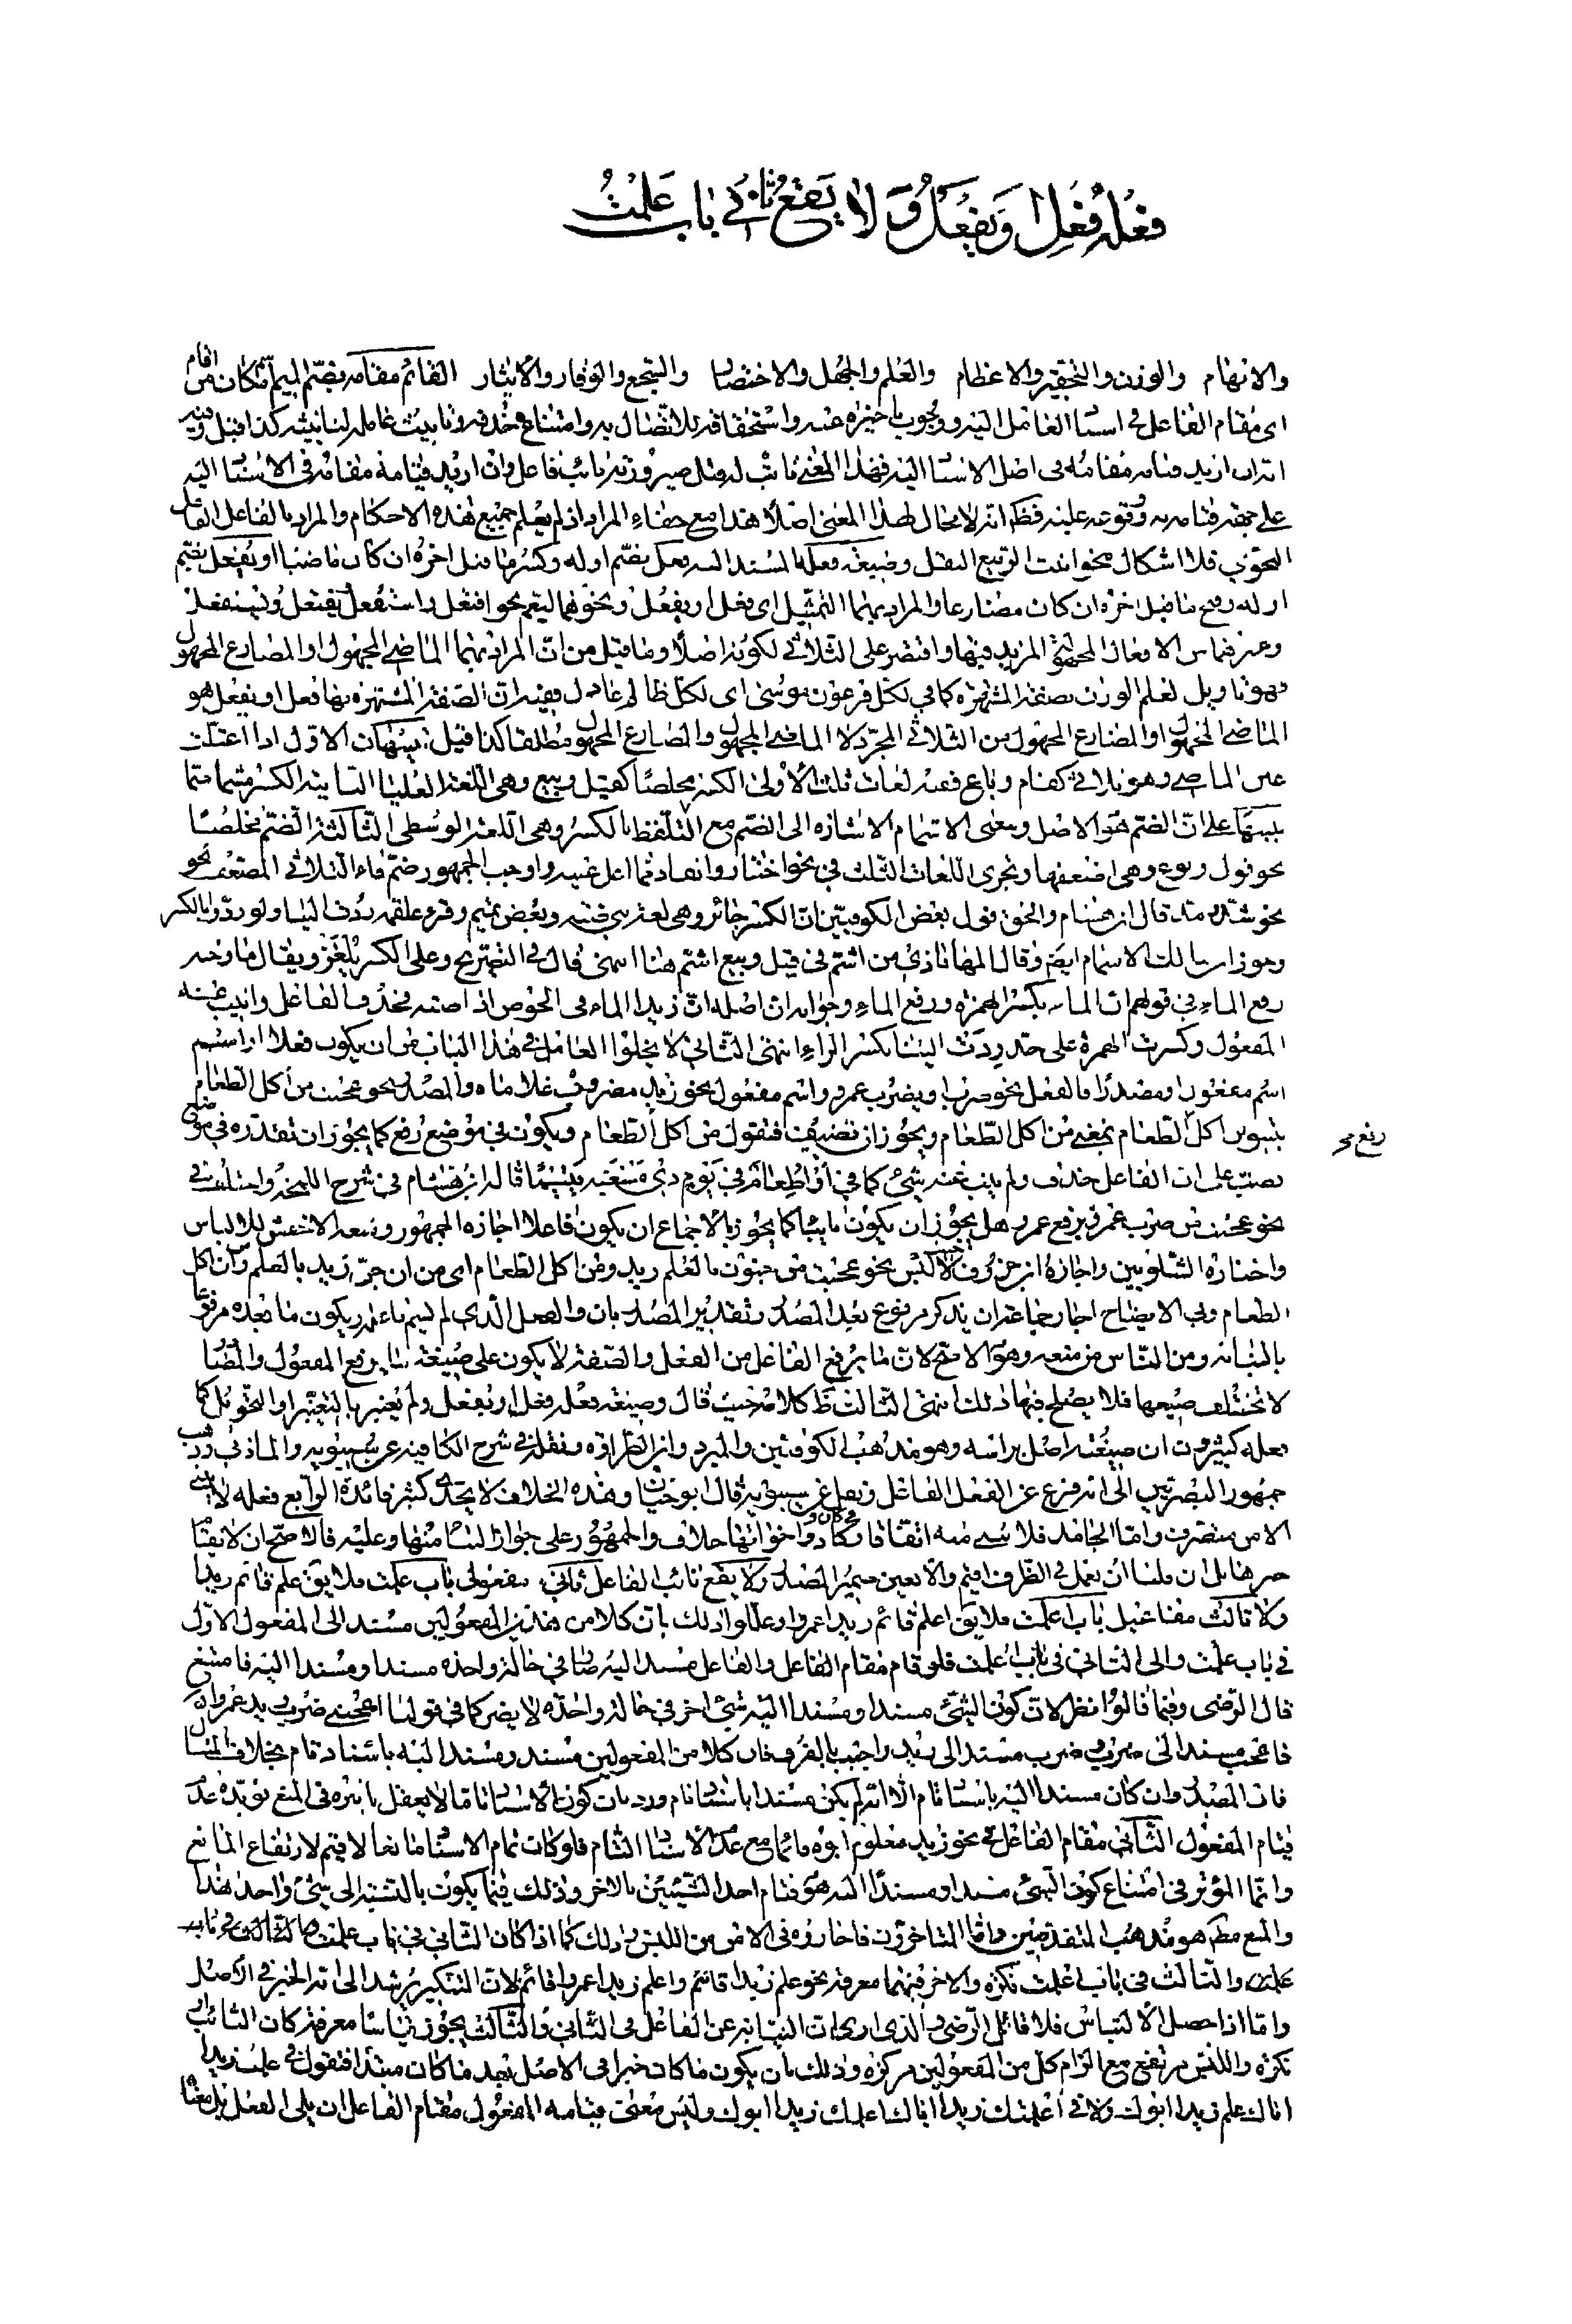 فعله فُعِلَ او يُفعَلُ وَلا يَقَعُ ثاني بابِ عَلِمْتُ
والابهام والوزن والتحقير والاعظام والعلم والجهل والاختصار والسجع والوقار والايثار القائم مقامه بضم الميم من اقام
اى مقام الفاعل فى اسناد العامل اليه ووجوب تاخيره عنه واستحقاقه للاتصال به وامتناع حذفه وتانيث عامله لتانيثه كذا قيل وفيه
انه ان اريد قيامه مقامه فى اصل الاسناد اليه فهذا المعنى ثابت له قبل صيرورته نائب فاعل وان اريد قيامه مقامه فى الاسناد اليه
على جهة قيامه به ووقوعه عليه فظ انه لا مجال لهذا المعنى اصلا هذا مع خفاء المراد اذ لم يعلم جميع هذه الاحكام والمراد بالفاعل الفاعل
النحوى فلا اشكال بنحو انبت الربيع البقل وصيغة فعله المسند اليه فعل بضم اوله وكسر ما قبل اخره ان كان ماضيا او يفعل بضم
اوله وفتح ما قبل اخره ان كان مضارعا والمراد بهما التمثيل اى فعل او يفعل ونحوهما ليعم نحو افتعل واستفعل يفتعل ويستفعل
وغيرهما من الافعال المجهولة المزيد فيها واقتصر على الثلاثى لكونه اصلا وما قيل من ان المراد بهما الماضى المجهول او المضارع المجهول
فهو تاويل لعلم الوزن بصفته المشتهرة كما فى لكل فرعون موسى اى لكل ظالم عادل ففيه ان الصفة المشتهرة بها فعل او يفعل هو
الماضى المجهول او المضارع المجهول من الثلاثى المجرد لا الماضى المجهول والمضارع المجهول مطلقا كذا قيل تنبيهات الاول اذا اعتلت
عين الماضى وهو ثلاثى كقام وباع ففيه لغات ثلث الاولى الكسر مخلصا كقيل وبيع وهى اللغة العليا الثانية الكسر مشما ضما
تنبيها على ان الضم هو الاصل ومعنى الاشمام الاشارة الى الضم مع التلفظ بالكسر وهى اللغة الوسطى الثالثة الضم مخلصا
نحو قول وبوع وهى اضعفها وتجرى اللغات الثلث فى نحو اختار وانقاد مما اعل عينه واوجب الجمهور ضم فاء الثلاثى المضعف نحو
نحو شد ومد قال ابن هشام والحق قول بعض الكوفيين ان الكسر جائز وهى لغة بنى ضبة وبعض تميم وقرء علقمة ردت الينا ولو ردوا بالكسر
وجوز ابن مالك الاشمام ايض وقال المهاباذى من اشم فى قيل وبيع اشم هنا انتهى قال فى التصريح وعلى الكسر يلغز ويقال ما وجه
رفع الماء فى قولهم ان الماء بكسر الهمزة ورفع الماء وجوابه ان اصله ان زيد الماء فى الحوض اذا صبه فحذف الفاعل وانيب عنه
المفعول وكسرت الهمزة على حد ردت الينا بكسر الراء انتهى الثانى لا يخلوا العامل فى هذا الباب من ان يكون فعلا او
اسم مفعول او مصدرا فالفعل نحو ضرب ويضرب عمرو واسم مفعول نحو زيد مضروب غلاماه والمصدر نحو عجبت من اكل الطعام
بتنوين اكل الطعام بمعنى من اكل الطعام ويجوز ان تضيف فتقول من اكل الطعام ويكون فى موضع رفع كما يجوز ان تقدره فى موضع
رفع صح
نصب على ان الفاعل حذف ولم ينب عنه شئ كما فى او اطعام فى يوم ذى مسغبة يتيما قاله ابن هشام فى شرح اللمحة واختلف فى
نحو عجبت من ضرب عمرو برفع عمرو هل يجوز ان يكون نائبا كما يجوز بالاجماع ان يكون فاعلا اجازه الجمهور ومنعه الاخفش للالباس
واختاره الشلوبين واجازه ابن خروف حيث لا لبس نحو عجبت من جنون بالعلم زيد ومن اكل الطعام اى من ان جن زيد بالعلم ومن ان اكل
الطعام وفى الايضاح اجاز جماعة ان يذكر مرفوع بعد المصدر وتقدير المصدر بان والفعل الذى لم يسم فاعله يكون ما بعده مرفوعا
بالنيابة ومن الناس من منعه وهو الاصح لان ما يرفع الفاعل من الفعل والصفة لا يكون على صيغة ما يرفع المفعول والمصادر
لا تختلف صيغها فلا يصلح فيها ذلك انتهى الثالث ظ كلامه حيث قال وصيغة فعله فعل او يفعل ولم يعبر بالتغيير او التحويل كما
فعله كثيرون ان صيغته اصل براسه وهو مذهب الكوفيين والمبرد وابن الطراوة ونقله فى شرح الكافية عن سيبويه والمازنى وذهب
جمهور البصريين الى انه فرع عن الفعل الفاعل ونقل عن سيبويه قال ابو حيان وهذه الخلاف لا يجدى كثير فائدة الرابع فعله لا يبنى
الا من متصرف واما الجامد فلا يبنى منه اتفاقا وفى كان وكاد واخواتها خلاف والجمهور على جواز البناء منها وعليه فالاصح ان لا يقام
خبرها بل ان قلنا ان تعمل فى الظرف اقيم والا تعين ضمير المصدر ولا يقع نائب الفاعل ثانى مفعولى باب علمت فلا يق علم قائم زيدا
ولا ثالث مفاعيل باب اعلمت فلا يق اعلم قائم زيدا عمروا وعللوا ذلك بان كلا من هذين المفعولين مسند الى المفعول الاول
فى باب علمت والى الثانى فى باب اعلمت فلو قام مقام الفاعل والفاعل مسند اليه صار فى حالة واحدة مسندا ومسندا اليه فامتنع
قال الرضى وفيما قالوا نظر لان كون الشئ مسندا ومسندا اليه شئ اخر فى حالة واحدة لا يضر كما فى قولنا اعجبنى ضرب زيد عمروا
فاعجب مسند الى ضرب وضرب مسند الى زيد واجيب بالفرق فان كلا من المفعولين مسند ومسند اليه باسناد تام بخلاف المثال
فان المصدر وان كان مسندا اليه باسناد تام الا انه لم يكن مسندا باسناد تام ورد بان كون الاسناد تاما لا يعقل تاثيره فى المنع يؤيده عدم
قيام المفعول الثانى مقام الفاعل فى نحو زيد معلوم ابوه قائما مع عدم الاسناد التام فلو كان تمام الاسناد مانعا لاقيم لارتفاع المانع
وانما المؤثر فى امتناع كون الشئ مسندا ومسندا اليه هو قيام احد الشيئين بالاخر وذلك فيما يكون بالنسبة الى شئ واحد هذا
والمنع مط هو مذهب المتقدمين واما المتاخرون فاجازوه فى الامن من اللبس وذلك كما اذا كان الثانى فى باب
علمت والثالث فى باب اعلمت نكرة والاخر فيهما معرفة نحو علم زيدا قائم واعلم زيدا عمروا قائم لان التنكير يرشد الى انه الخبر فى الاصل
واما اذا حصل الالتباس فلا قال الرضى والذى ارى ان النيابة عن الفاعل فى الثانى والثالث يجوز قياسا معرفة كان النائب او
نكرة واللبس مرتفع مع الزام كل من المفعولين مركزه وذلك بان يكون ما كان خبرا فى الاصل بعد ما كان مبتدا فتقول فى علمت زيدا
اباك علم زيدا ابوك وفى اعلمتك زيدا اباك اعلمك زيدا ابوك وليس معنى قيامه المفعول مقام الفاعل ان يلى الفعل بل معناه